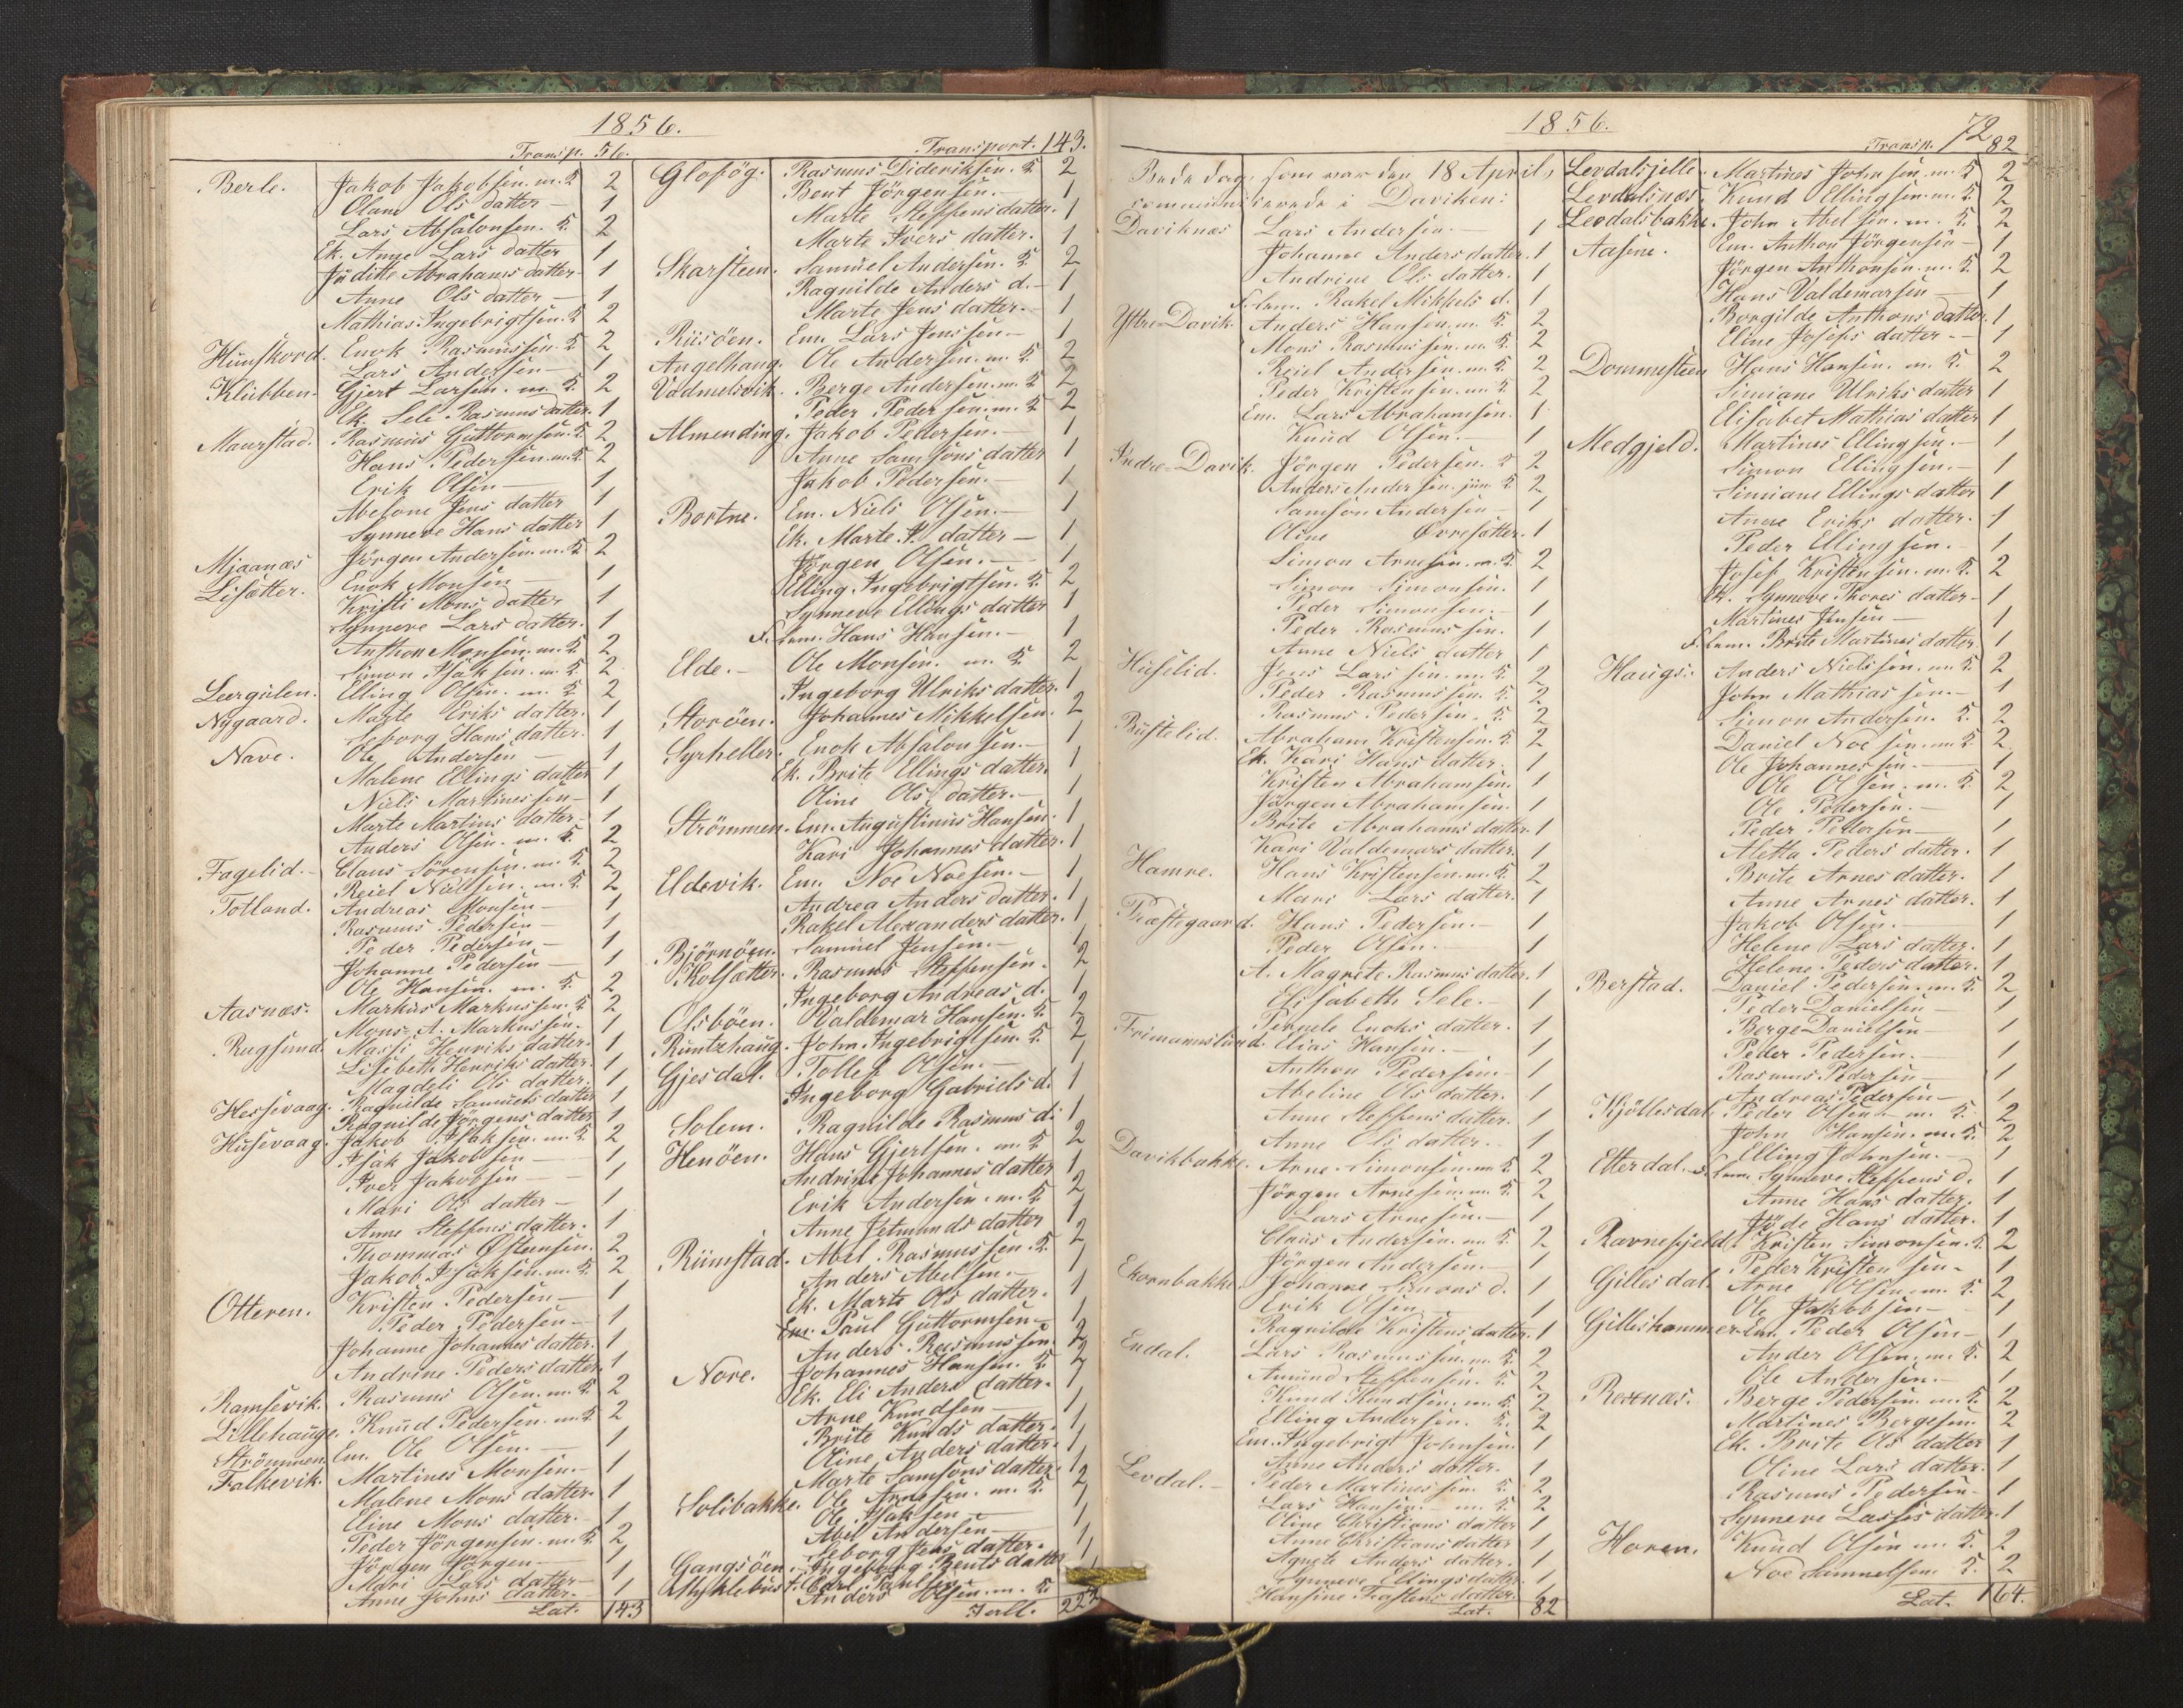 1856.
Transp. 56.
Berle. Jakob Jakobsen. m. K. 2
Olam Ols datter — 1
Lars Absalonsen. K. 2
Ek. Anne Lars datter 1
Juditte Abrahams datter — 1
Anne Ols datter — 1
Mathias Ingebrigtsen. K 2
Hunskord. Enok Rasmussen. K 2
Lars Andersen — 1
Klubben. Gjert Larsen. m. K. 2
Ek. Seli Rasmus datter. 1
Maurstad. Rasmus Guttormsen. K 2
Hans Pedersen. m. K. 2
Erik Olsen — 1
Abelone Jens datter 1
Synneve Hans datter 1
Mjaanæs Jörgen Andersen. m. K 2
Lisætter. Enok Monsen — 1
Kristi Mons datter 1
Synneve Lars datter. 1
Anthon Monsen. m. K 2
Simon Isaksen. m. K 2
Leergulen. Elling Olsen. m. K 2
Nygaard. Marte Eriks datter. 1
Seborg Hans datter. 1
Nave. Ole Andersen — 1
Malene Ellings datter 1
Niels Martinessen — 1
Marte Martins datter — 1
Anders Olsen. m. K. 2
Fagelid. — Claus Sörensen. m. K. 2
Reiel Nielsen. m. K. 2
Totland. Andreas Monsen — 1
Rasmus Pedersen — 1
Peder Pedersen — 1
Johanne Pedersen — 1
Ole Hansen. m. K. 2
Aasnæs. Markus Markussen. K 2
Mons A. Markussen. 1
Rugsund. Massi Henriks datter. 1
Lisebeth Henriks datter. 1
Magdeli Ols datter. 1
Hessevaag. Ragnilde Samuels datter 1
Ragnilde Jörgens datter 1
Husevaag. Jakob Isaksen. m. K. 2
Isak Jakobsen — 1
Iver Jakobsen — 1
Mari Ols datter — 1
Anne Steffens datter. 1
Thommas Østensen. 2
Jakob Isaksen. m. K. 2
Otteren. Kristen Pedersen — 1
Peder Pedersen — 1
Johanne Johannes datter. 1
Andrine Peders datter. 1
Ramsevik. Rasmus Olsen. m. K 2
Lillehauge. Knud Pedersen. m. K. 2
Strömmen. Em. Ole Olsen. — 1
Falkevik. Martines Monsen. — 1
Malene Mons datter. 1
Eline Mons datter. — 1
Peder Jörgensen. m. K 2
Jörgen Jörgen — 1
Mari Lars datter — 1
Anne Johns datter. — 1
Lat. 143
Transport. 143.
Glofög. Rasmus Dideriksen. K 2
Bent Jörgensen. — 1
Marte Steffens datter. 1
Marte Ivers datter. 1
Skarsteen. Samuel Andersen. K 2
Ragnilde Anders d. — 1
Marte Jens datter. — 1
Riisöen. Em. Lars Jenssen. — 1
Angelhaug. Ole Andersen. m. K 2
Vadmelsvik. Berge Andersen. m. K 2
Peder Pedersen. m. K 2
Almending. Jakob Pettersen. — 1
Anne Samsons datter 1
Jakob Pedersen. — 1
Bortne. Em. Niels Olsen. — 1
Ek. Marte P. datter — 1
Jörgen Olsen. — 1
Elling Ingebrigtsen. K. 2
Synneve Ellings datter 1
F. lem. Hans Hansen. — 1
Elde. — Ole Monsen. m. K 2
Ingeborg Ulriks datter. 1
Storöen. Johannes Mikkelsen. 2
Syrheller. Enok Absalonsen. — 1
Ek. Brite Ellings datter. 1
Oline Ols datter. — 1
Strömmen. Em. Augustinus Hansen. 1
Kari Johannes datter. 1
Eldevik. Em. Noe Noesen. — 1
Andrea Anders datter. 1
Rakel Alexanders datter. 1
Björnöen. Samuel Jensen. — 1
Kolsætter. Rasmus Steffensen. 2
Ingeborg Andreas d. 1
Olsböen. Valdemar Hansen. K. 2
Runtzhaug. John Ingebrigtsen. K. 2
Gjesdal. Tollef Olsen. — 1
Ingeborg Gabriels d. 1
Solem. Ragnilde Rasmus d: 1
Henöen. Hans Gjertsen. m. K 2
Andrine Johannes datter 1
Erik Andersen. m. K. 2
Anne Jetmunds datter 1
Rumstad. Abel Rasmussen. K. 2
Anders Abelsen. — 1
Ek. Marte Ols datter. 1
Em. Paul Guttormsen — 1
Anders Rasmussen. 2
Nore. Johannes Hansen. K. 2
Ek. Eli Anders datter. 1
Arne Knudsen — 1
Brite Knuds datter. 1
Oline Anders datter. 1
Marte Samsons datter. 1
Solibakke. Ole Arnesen. m. K. 2
Ole Isaksen — 1
Abel Andersen — 1
Seborg Jens datter. 1
Gangsöen. Ingeborg Bents datter 1
Myklebust. Carl Paulsen
Anders Olsen. m. K
I all. 222
1856.
72
Transp. 82
Bededag, som var den 18 April,
communicerede i Daviken:
Daviknæs Lars Andersen. — 1
Johanne Anders datter. 1
Andrine Ols datter. 1
F. lem. Rakel Mikkels d. 1
Ytre-Davik. Anders Hansen. m. K. 2
Mons Rasmussen. m. K. 2
Reiel Andersen. m. K. 2
Peder Kristensen. m. K 2
Em. Lars Abrahamsen. 1
Knud Olsen. — 1
Indre-Davik. Jörgen Pedersen. K 2
Anders Andersen. jün. K 2
Samson Andersen — 1
Oline Øvresætter. 1
Simon Arnesen. m. K 2
Simon Simonsen. 1
Peder Simonsen. — 1
Peder Rasmussen. 1
Anne Niels datter 1
Huselid. Jens Larssen. m. K. 2
Peder Rasmussen. K. 2
Rasmus Pedersen. K. 2
Bustelid. Abraham Kristensen. K. 2
Ek. Kari Hans datter. 1
Kristen Abrahamsen. 1
Jörgen Abrahamsen. 1
Brite Abrahams datter. 1
Kari Valdemars datter. 1
Hamre. Hans Kristensen. m. K. 2
Mari Lars datter. 1
Præstegaard. Hans Pedersen. — 1
Peder Olsen. — 1
A. Magrete Rasmus datter. 1
Elisabeth Sele. — 1
Pernele Enoks datter. 1
Frimannslund. Elias Hansen. — 1
Anthon Pedersen — 1
Abeline Ols datter. 1
Anne Steffens datter. 1
Anne Ols datter. 1
Davikbakke. Arne Simonsen. m. K. 2
Jörgen Arnesen. m. K. 2
Lars Arnesen. — 1
Claus Andersen. m. K. 2
Jörgen Andersen. — 1
Ekornbakke. Johanne Simons d. 1
Erik Olsen 1
Ragnilde Kristens datter. 1
Endal. Lars Rasmussen. m. K. 2
Amund Steffensen. K. 2
Knud Knudsen. m. K. 2
Elling Andersen. K. 2
Em. Ingebrigt Johnsen. 1
Anne Anders datter. 1
Levdal. — Peder Martinessen. K. 2
Lars Hansen. — m. K. 2
Oline Christians datter 1
Anne Christians datter 1
Agnete Anders datter. 1
Synneve Ellings datter. 1
Hansine datter. 1
Lat. 82
Levdalsjelle. Martines Johnsen. m. K 2
Levdalsnæs. Knud Ellingsen. m. K 2
Levdalsbakke. John Abelsen. m. K. 2
Aasene. Em. Anthon Jörgensen — 1
Jörgen Anthonsen. m. K. 2
Hans Valdemarsen — 1
Borgilde Anthons datter. 1
Eline Josefs datter — 1
Dommesteen Hans Hansen. m. K. 2
Simiane Ulriks datter 1
Elisabet Mathias datter 1
Medgjeld. Martines Ellingsen. — 1
Simon Ellingsen. — 1
Simiane Ellings datter 1
Anne Eriks datter. 1
Peder Ellingsen. — 1
Josef Kristensen. m. K. 2
Ek. Synneve Thores datter — 1
Martines Jensen — 1
F. lem. Brite Martines datter 1
Haugs. Anders Nielssen. m. K 2
John Mathiassen. — 1
Simon Andersen. K. 2
Daniel Noesen. m. K 2
Ole Johannessen. — 1
Ole Olsen. m. K. 2
Ole Pedersen. — 1
Peder Pedersen — 1
Aletta Peders datter. 1
Brite Arnes datter. 1
Anne Arnes datter. 1
Jakob Olsen. — 1
Helene Lars datter. 1
Helene Peders datter. 1
Berstad. Daniel Pedersen. m. K. 2
Peder Danielsen — 1
Berge Danielsen 1
Peder Pedersen. — 1
Rasmus Pedersen — 1
Andreas Pedersen — 1
Kjöllesdal. Peder Olsen. — m. K. 2
John Hansen. m. K. 2
Elling Johnsen. — 1
Etterdal. F. lem. Synneve Steffens d. 1
Anne Hans datter. 1
Jöde Hans datter. 1
Ravnefjeld. Kristen Simonsen. K. 2
Peder Kristensen — 1
Gillesdal. Arne Olsen. m. K 2
Ole Jakobsen — 1
Gilleskammer. Em. Peder Olsen — 1
Ander Olsen. m. K. 2
Ole Andersen. — 1
Rexnæs. Berge Pedersen. m. K 2
Martines Bergesen 2
Ek. Brite Ols datter 1
Oline Lars datter. 1
Rasmus Pedersen — 1
Synneve Lasses datter. 1
Horen. Knud Olsen m. K. 2
Noe Samuelsen K. 2
Lat. 164.